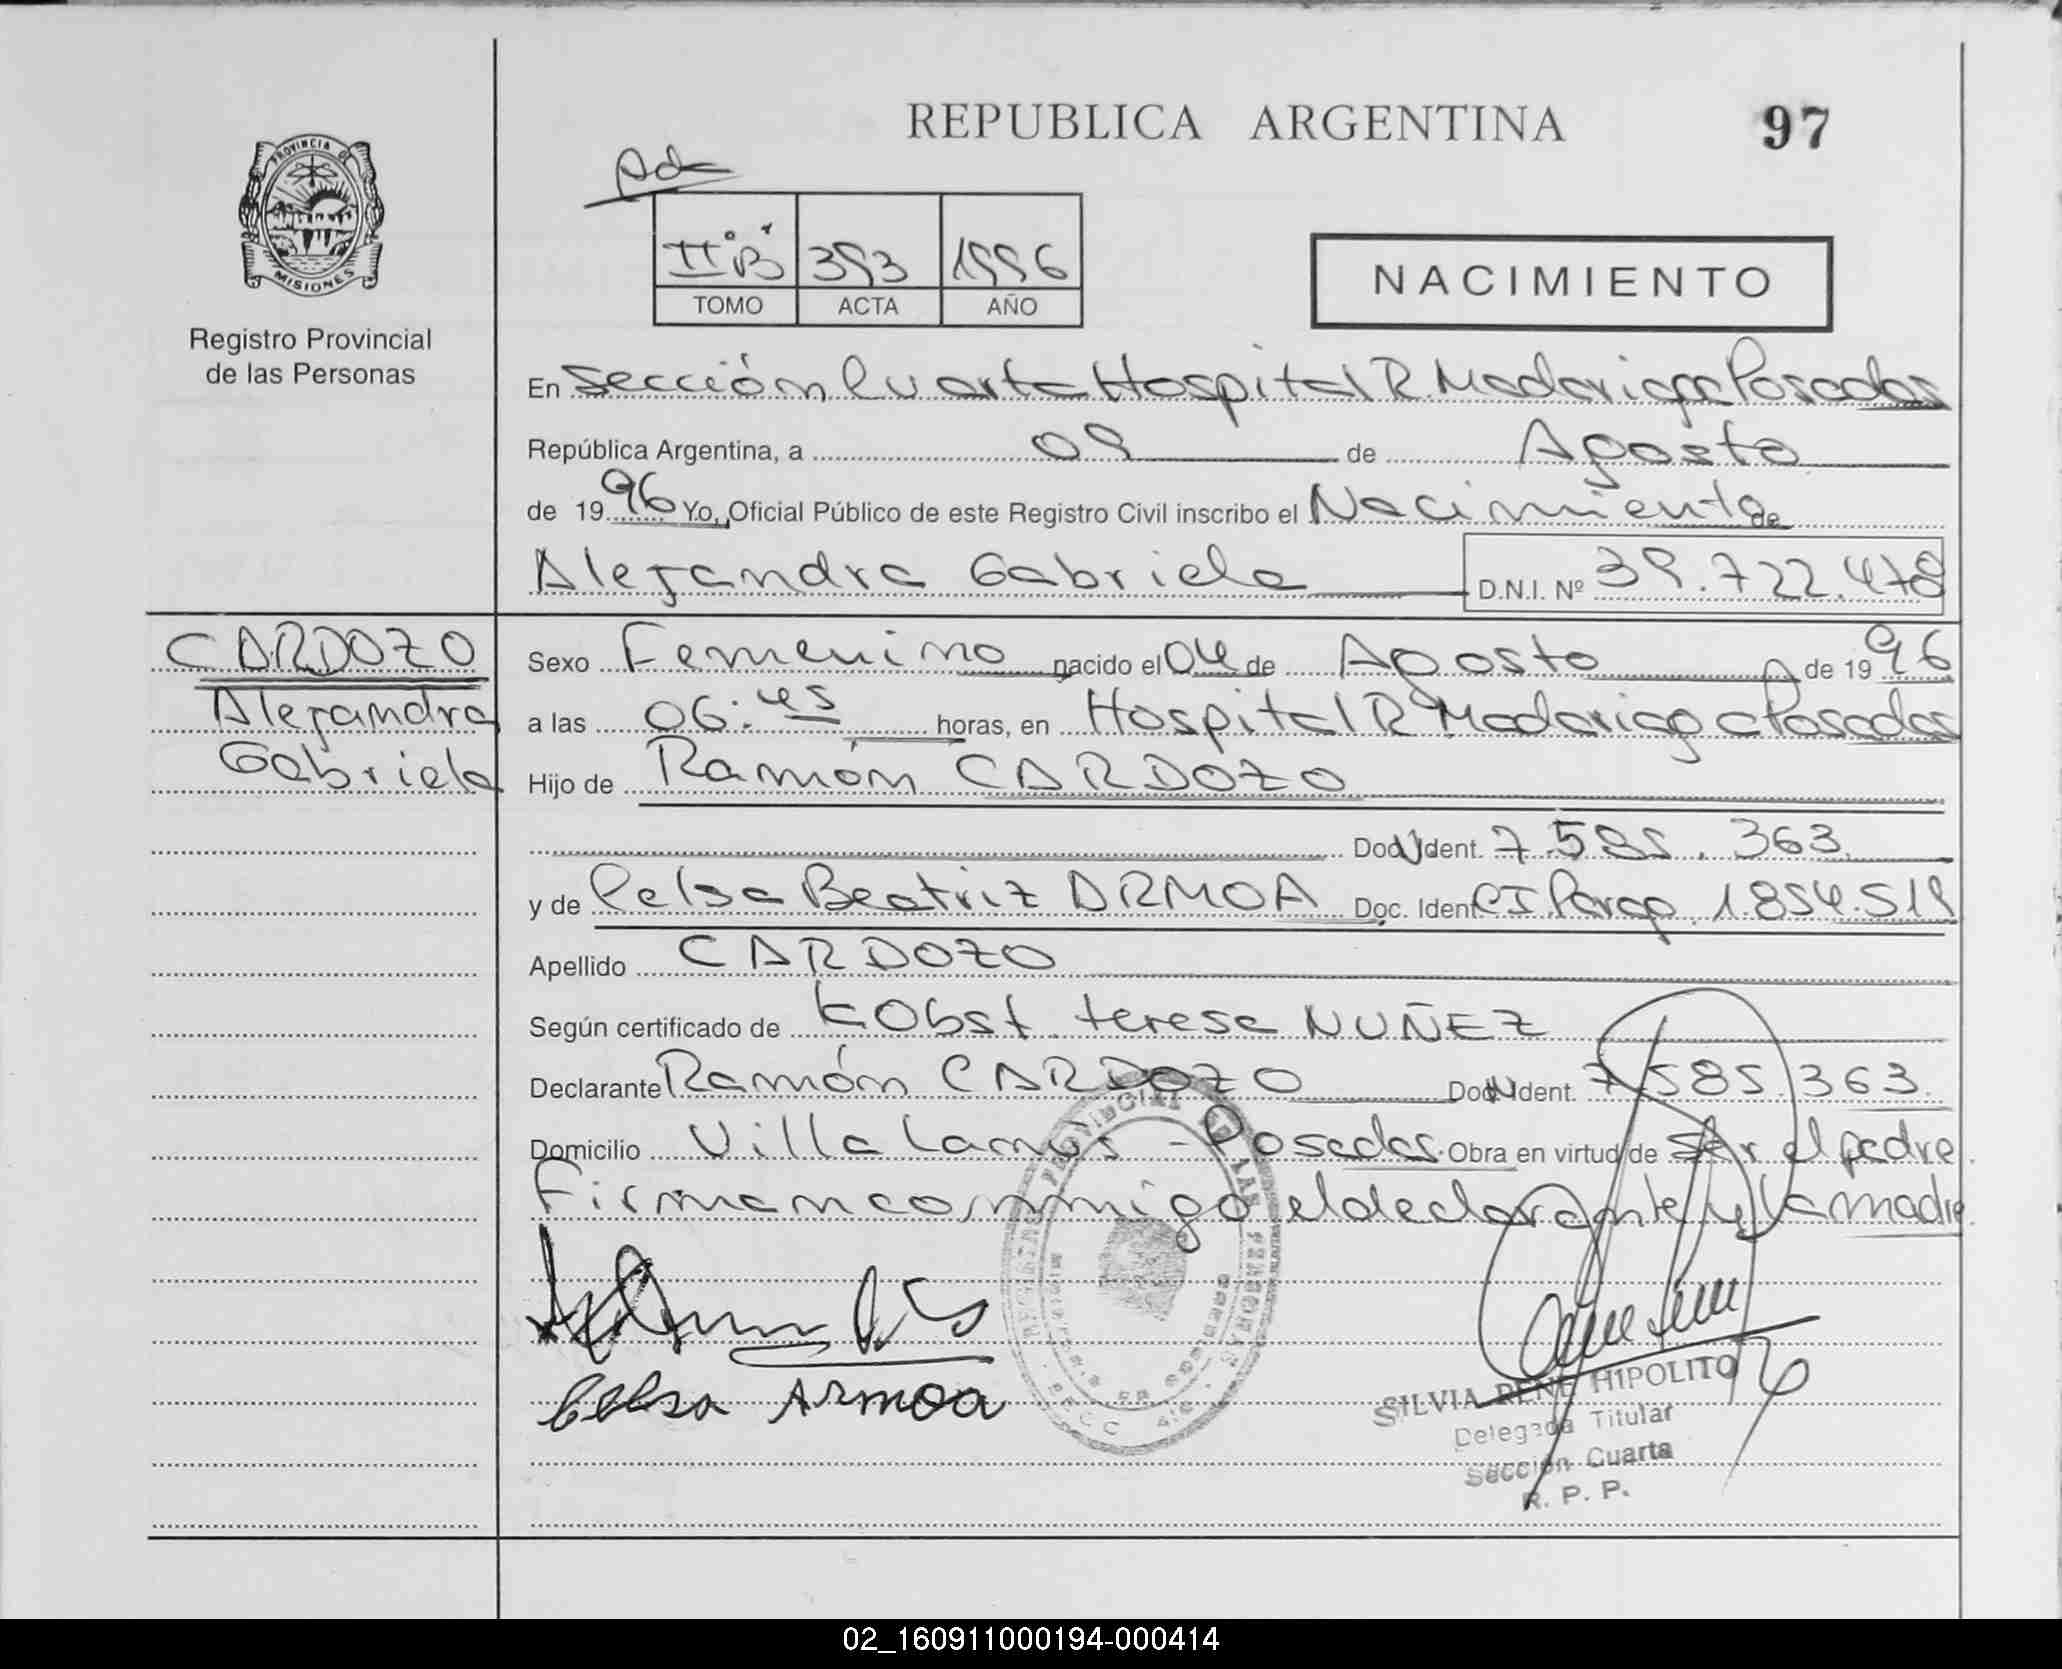 REPUBLICA ARGENTINA 97
PROVINCIA DE
MISIONES
Registro Provincial
de las Personas
II "B" 393 1996
TOMO ACTA AÑO
NACIMIENTO
En Sección Cuarta Hospital R. Madariaga Posadas
República Argentina, a 09 de Agosto
de 1996 Yo, Oficial Público de este Registro Civil inscribo el Nacimiento de
Alejandra Gabriela D.N.I. Nº 39.722.478
CARDOZO
Alejandra
Gabriela
Sexo Femenino nacido el 04 de Agosto de 1996
a las 06:45 horas, en Hospital R Madariaga Posadas
Hijo de Ramón CARDOZO
Doc. Ident. 7.585.363
y de Celsa Beatriz ARMOA Doc. Ident. CI Parag 1.854.519
Apellido CARDOZO
Según certificado de Obst. teresa NUÑEZ
Declarante Ramón CARDOZO Doc. Ident. 7.585.363
Domicilio Villa Lanús - Posadas Obra en virtud de ser el padre.
Firman conmigo el declarante y la madre.
Celsa ARmoa
SILVIA RENE HIPOLITO
Delegada Titular
Sección Cuarta
R. P. P.
02_160911000194-000414